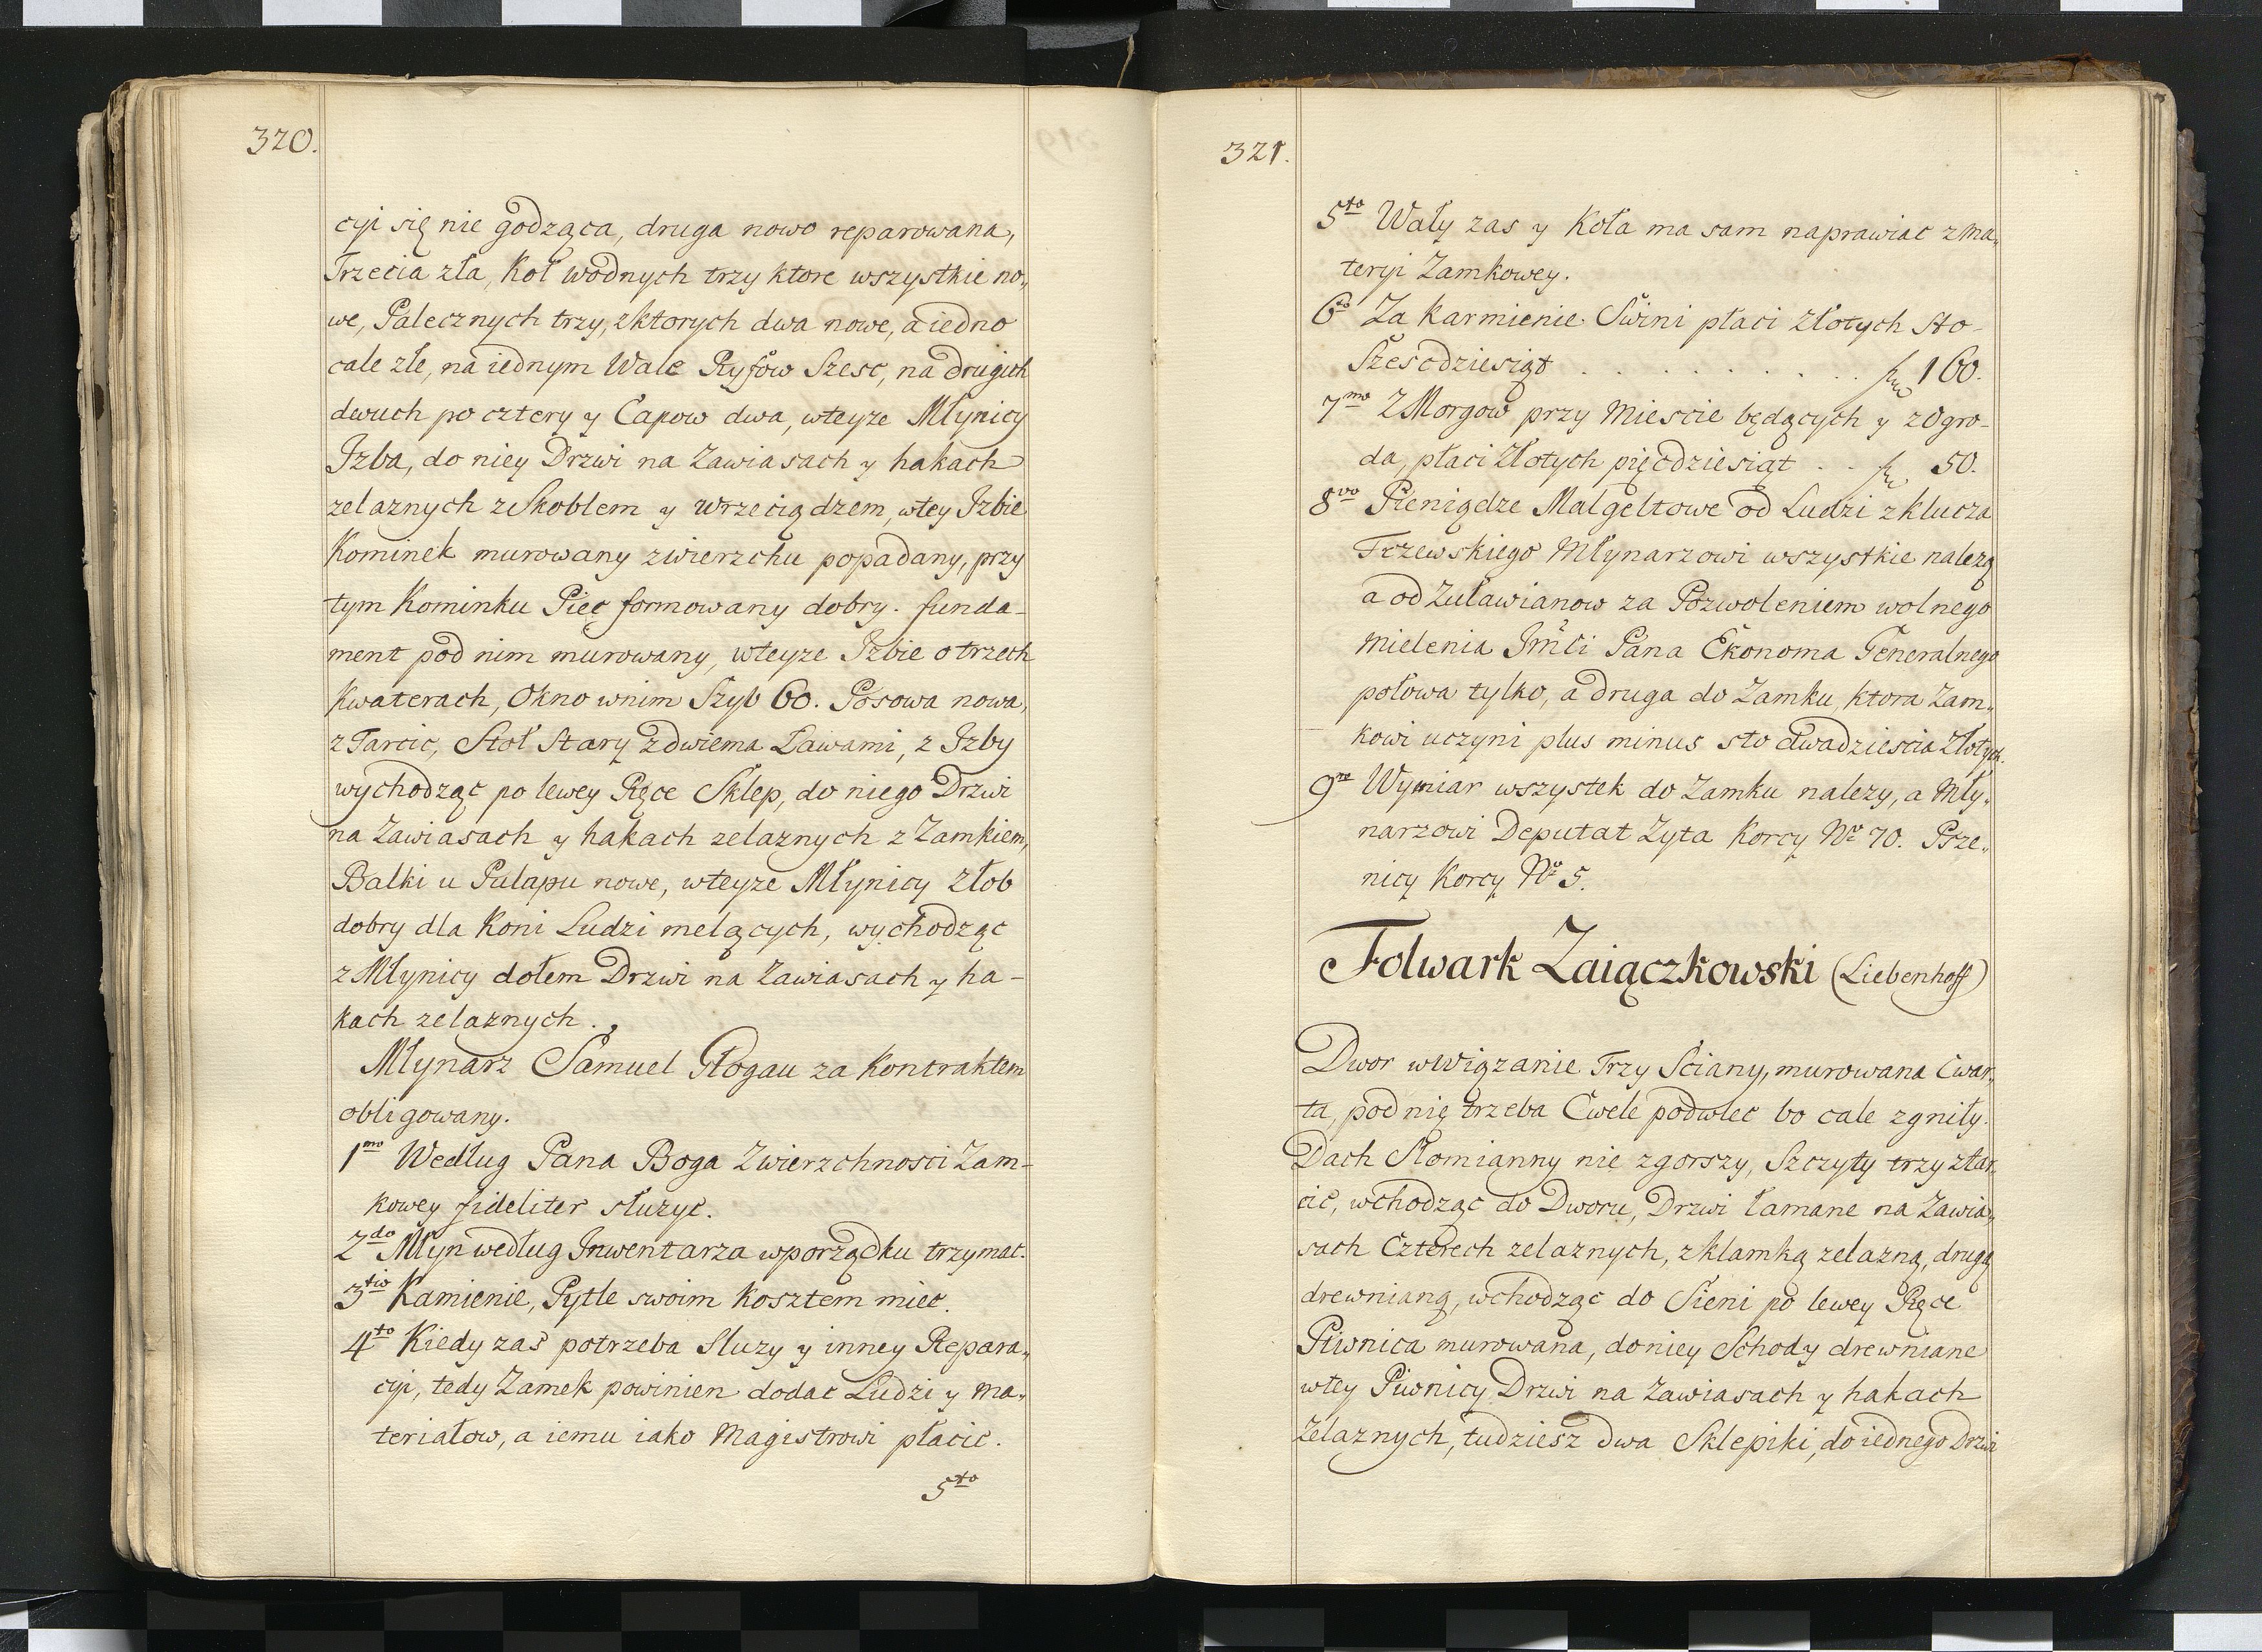 320.
cyi się nie godząca, druga nowo reparowana,
Trzecia zła, Koł wodnych trzy ktore wszystkie no„
we, Palecznych trzy, z ktorych dwa nowe, a iedno
cale złe, na iednym Wale Ryfow Szesc, na drugich
dwuch po cztery y Capow dwa, wteyze Młynicy
Izba, do niey Drzwi na Zawiasach y hakach
zelaznych z Skoblem y wrzeciądzem, wtey Izbie
Kominek murowany zwierzchu popadany, przy
tym Kominku Piec formowany dobry. funda-
ment pod nim murowany, wteyze Izbie o trzech
Kwaterach, Okno wnim Szyb 60. Posowa nowa,
z Tarcic, Stoł Stary z dwiema Ławami, z Izby
wychodząc po lewey Ręce Sklep, do niego Drzwi
na Zawiasach y hakach zelaznych z Zamkiem,
Balki u Pulapu nowe, wteyze Młynicy Złob
dobry dla Koni Ludzi melących, wychodząc
z Młynicy dołem Drzwi na Zawiasach y ha-
kach zelaznych.
Młynarz Samuel Głogau za Kontraktem
obligowany.
1mo Według Pana Boga Zwierzchnosci Zam-
kowey fideliter słuzyc.
2do Młyn według Inwentarza wporządku trzymac.
3tio Kamienie, Pytle swoim Kosztem miec.
4to Kiedy zas potrzeba Sluzy y inney Repara„
cyi, tedy Zamek powinien dodac Ludzi y ma„
teriałow, a iemu iako Magistrowi płacic.
5to
321.
5to Wały zas y Koła ma sam naprawiac z ma„
teryi Zamkowey.
6to Za Karmienie Swini płaci Złotych sto-
Szescdziesiąt . . . . . . . . . . 160.
7mo Z Morgow przy Miescie będących y z Ogro-
da, płaci Złotych pięcdziesiąt . . 50.
8vo Pieniądze Malgeltowe od Ludzi z klucza
Tczewskiego Młynarzowi wszystkie nalezą
a od Zuławianow za Pozwoleniem wolnego
mielenia Jmci Pana Ekonoma Generalnego
połowa tylko, a druga do Zamku, ktora Zam„
kowi uczyni plus minus sto dwadziescia Złotych.
9no Wymiar wszystek do Zamku nalezy, a Mły„
narzowi Deputat Zyta Korcy No 70. Psze„
nicy Korcy No 5.
Folwark Zaiączkowski (Liebenhoff)
Dwor wWiązanie Trzy Sciany, murowana Cwar„
ta, pod nię trzeba Cwele podwlec bo cale zgniły.
Dach Słomianny nie zgorszy, Szczyty trzy z tar„
cic, wchodząc do Dworu, Drzwi łamane na Zawia„
sach Czterech zelaznych, z klamką zelazną, drugą
drewnianą, wchodząc do Sieni po lewey Ręce
Piwnica murowana, do niey Schody drewniane
wtey Piwnicy Drzwi na Zawiasach y hakach
Zelaznych, tudziesz dwa Sklepiki, do iednego Drzwi